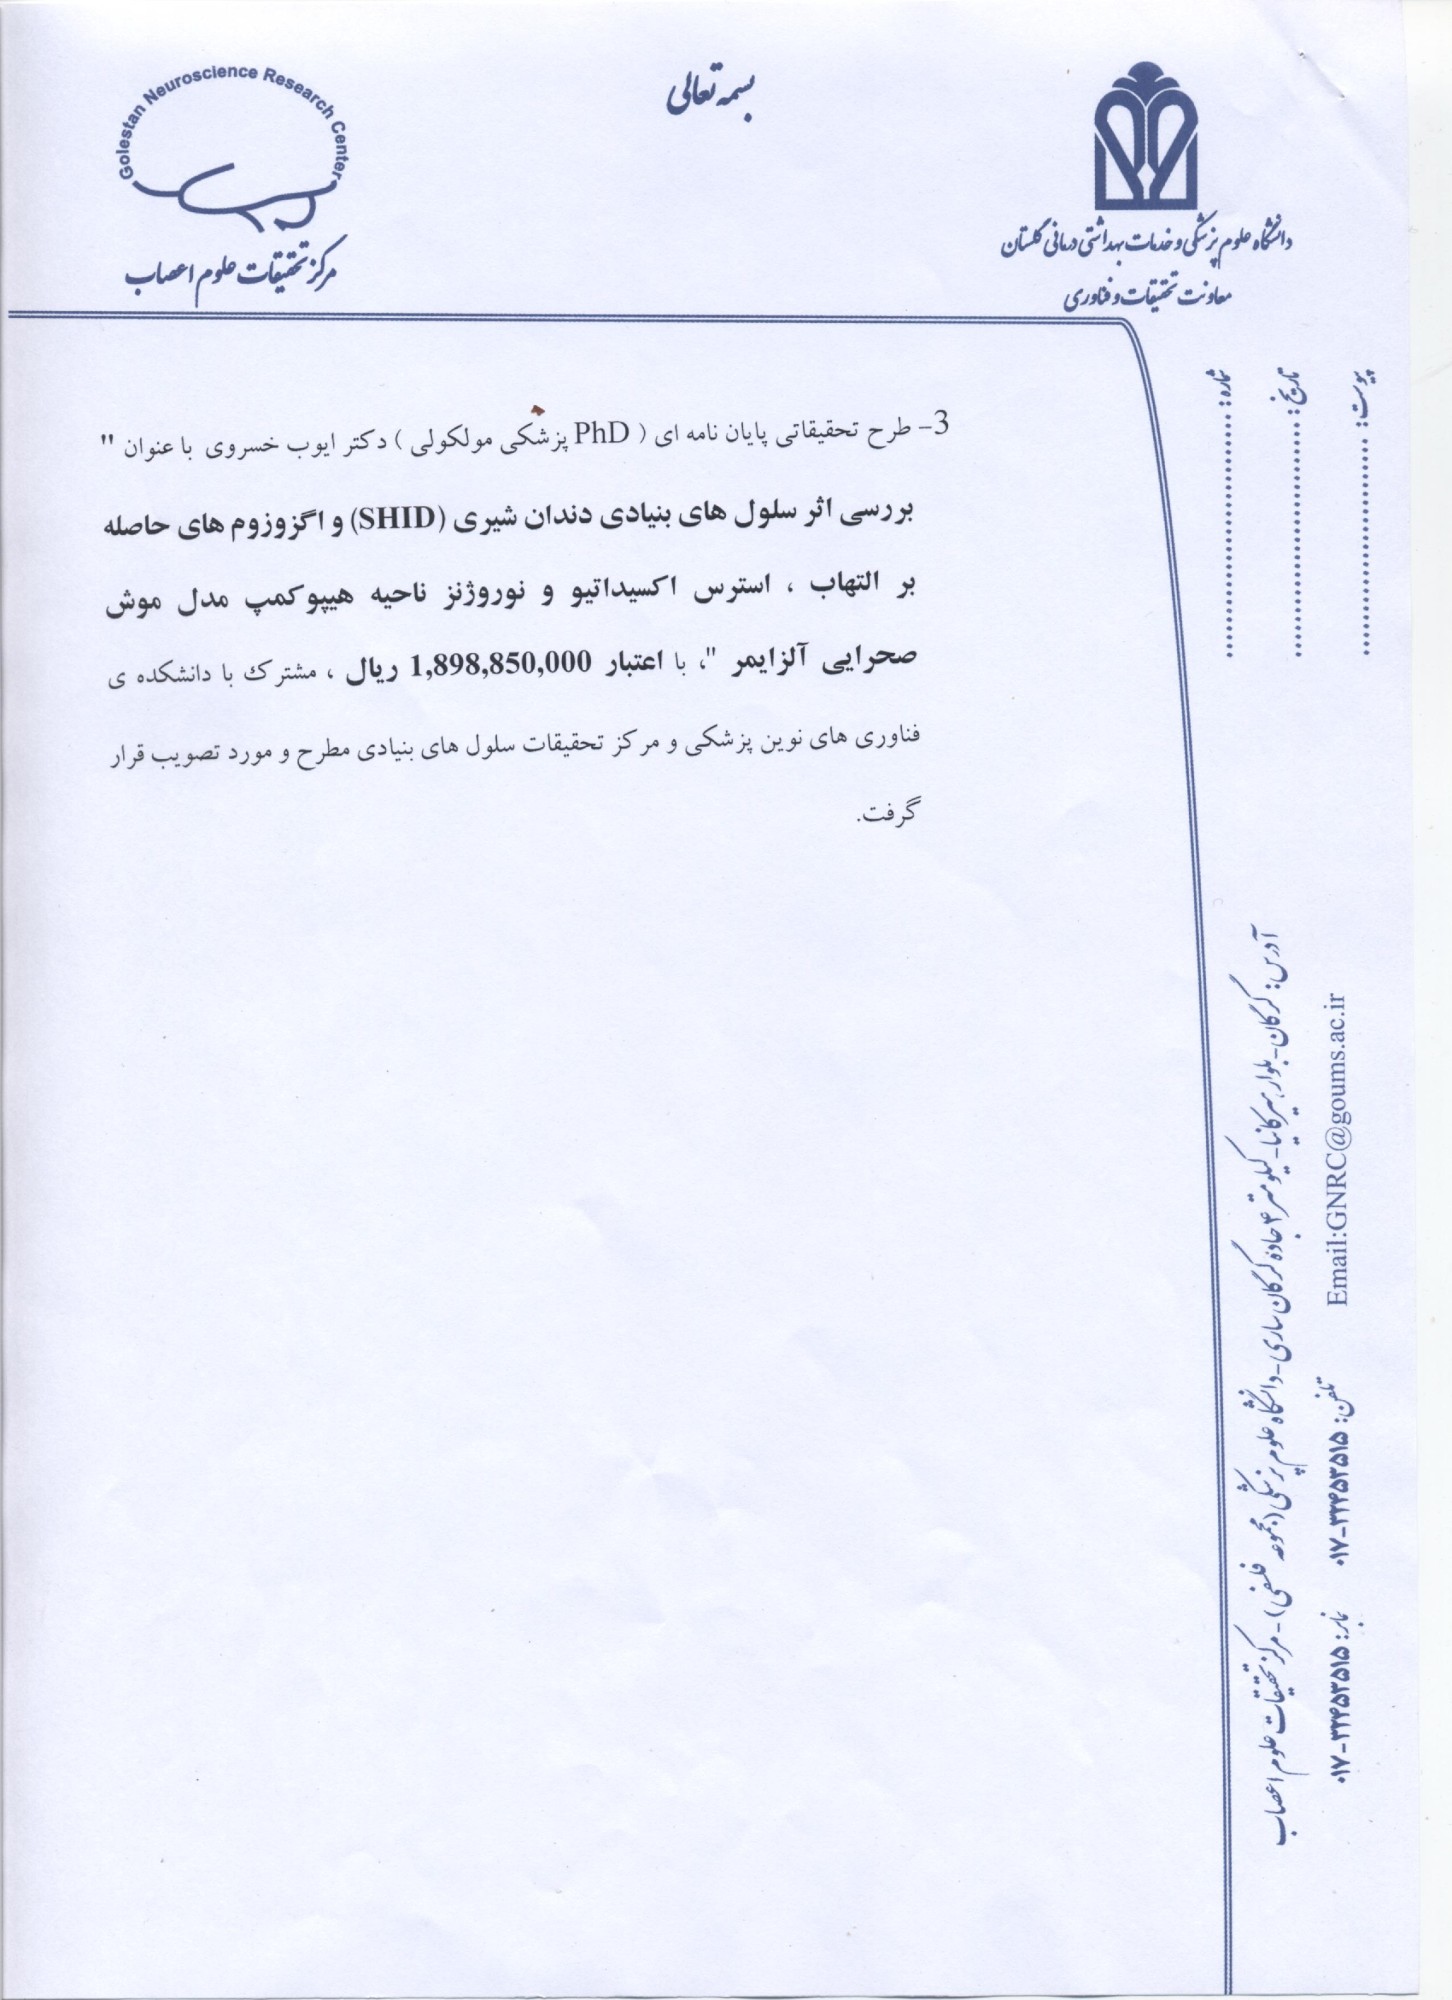 بسمه تعالی
دانشگاه علوم پزشکی و خدمات بهداشتی درمانی گلستان
معاونت تحقیقات و فناوری
Golestan Neuroscience Research Center
مرکز تحقیقات علوم اعصاب
شماره: ..............................
تاریخ: ..............................
پیوست: ..............................
3- طرح تحقیقاتی پایان نامه ای ( PhD پزشکی مولکولی ) دکتر ایوب خسروی با عنوان "
بررسی اثر سلول های بنیادی دندان شیری (SHID) و اگزوزوم های حاصله
بر التهاب ، استرس اکسیداتیو و نوروژنز ناحیه هیپوکمپ مدل موش
صحرایی آلزایمر "، با اعتبار 1,898,850,000 ریال ، مشترک با دانشکده ی
فناوری های نوین پزشکی و مرکز تحقیقات سلول های بنیادی مطرح و مورد تصویب قرار
گرفت.
آدرس: گرگان-بلوار هیرکانیا-کیلومتر ۴ جاده گرگان ساری-دانشگاه علوم پزشکی (مجموعه فلسفی)-مرکز تحقیقات علوم اعصاب
Email:GNRC@goums.ac.ir
تلفن: ۰۱۷-۳۲۴۵۳۵۱۵
نمابر: ۰۱۷-۳۲۴۵۳۵۱۵